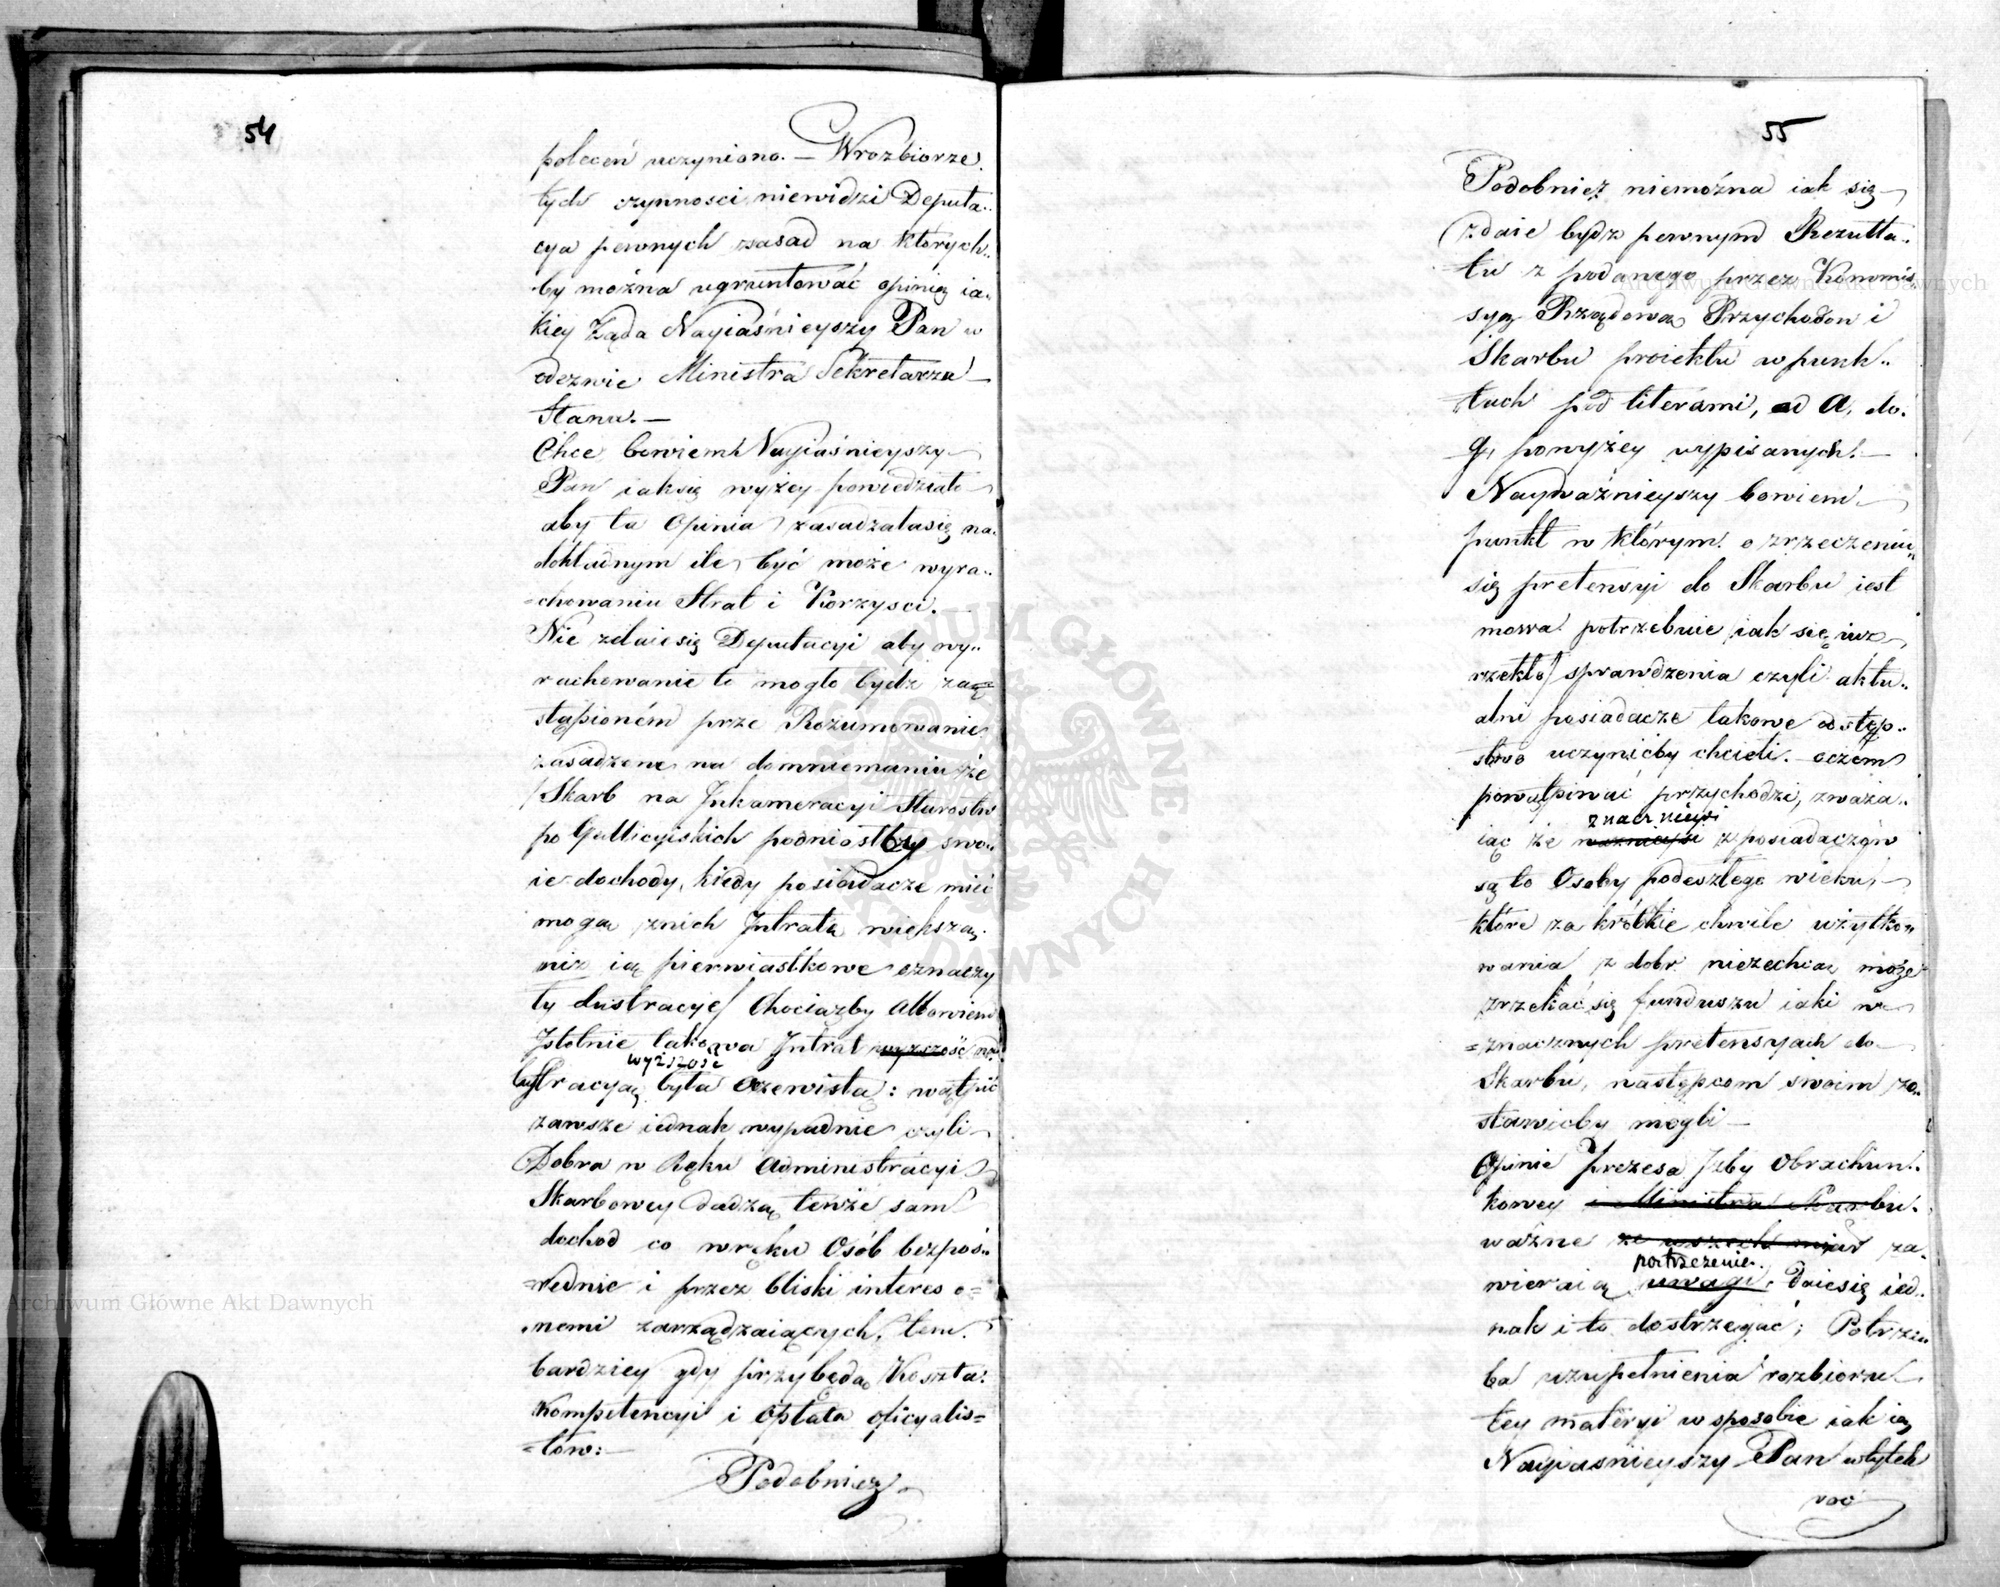 54
poleceń uczyniono. — W rozbiorze
tych czynnosci niewidzi Deputa„
cya pewnych zasad na których„
by można ugruntować opinię ia„
kiey żąda Nayiaśnieyszy Pan w
odezwie Ministra Sekretarza
Stanu. —
Chce bowiem Nayiaśnieyszy
Pan iak się wyżey powiedziało
aby ta Opinia zasadzała się na
dokładnym ile być może wyra„
=chowaniu Strat i Korzysci. —
Nie zdaie się Deputacyi aby wy„
rachowanie to mogło bydz za=
stąpioném prze Rozumowanie
zasadzone na domniemaniu że
Skarb na Inkameracyi Starostw
po Gallicyiskich podniosłby swo„
ie dochody, kiedy posiadacze mieć
mogą z nich Intratę większą
niż ią pierwiastkowe oznaczy
ły lustracye/ Chociażby Albowiem
Istotnie takowa Intrat wyższość nad
wyższość
lustracyą była Oczewistą: wątpić
zawsze iednak wypadnie czyli
Dobra w Ręku Administracyi
Skarbowey dadzą tenże sam
dochod co w ręku Osób bezpoś„
=rednie i przez bliski interes o=
niemi zarządzaiących, tem
bardziey gdy przybędą Koszta
Kompetencyi i Opłata oficyalis=
=tów: —
Podobnież
55
Podobnież niemożna iak się
zdaie bydz pewnym Rezulta„
tu z podanego przez Kommis
syą Rządową Przychodow i
Skarbu proiektu w punk„
tach pod literami, od A, do
g, powyżey wypisanych. —
Nayważnieyszy bowiem
punkt w którym o zrzeczeniu
się pretensyi do Skarbu iest
mowa potrzebuie iak się iuż
rzekło/ sprawdzenia czyli aktu„
alni posiadacze takowe odstęp„
stwo uczynićby chcieli. o czém
powątpiwać przychodzi, zważa„
znacznieysi
iąc że ważnieysi z posiadaczów
są to Osoby podeszłego wieku,
które za krótkie chwile użytko„
wania z dobr niezechcą może
zrzekać się funduszu iaki w
=znacznych pretensyach do
Skarbu, następcom swoim zo„
stawićby mogli —
Opinie Prezesa Izby Obrachun„
kowey i Ministra Skarbu
ważne ze wszech miar za„
postrzeżenie
wieraią uwagi. Daie się ied„
nak i tu dostrzegać; Potrze„
ba uzupełnienia rozbioru
tey materyi w sposobie iak ią
Nayiaśnieyszy Pan w tych